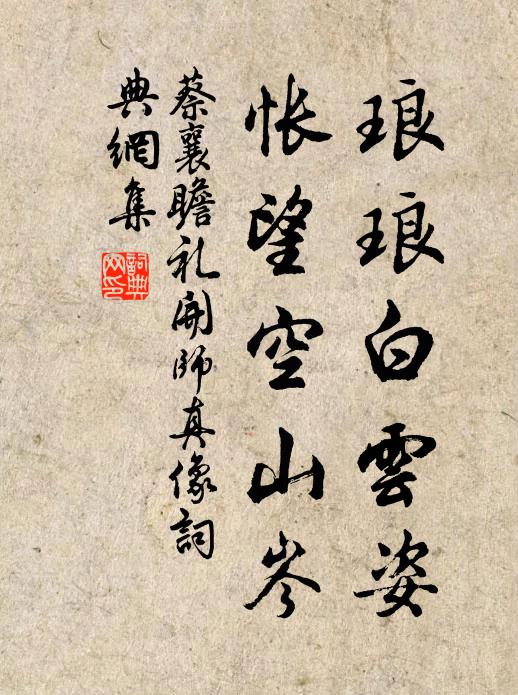 琅琅白雲姿
悵望空山岑
蔡襄瞻礼開師真像詞
典網集
詞典
网印